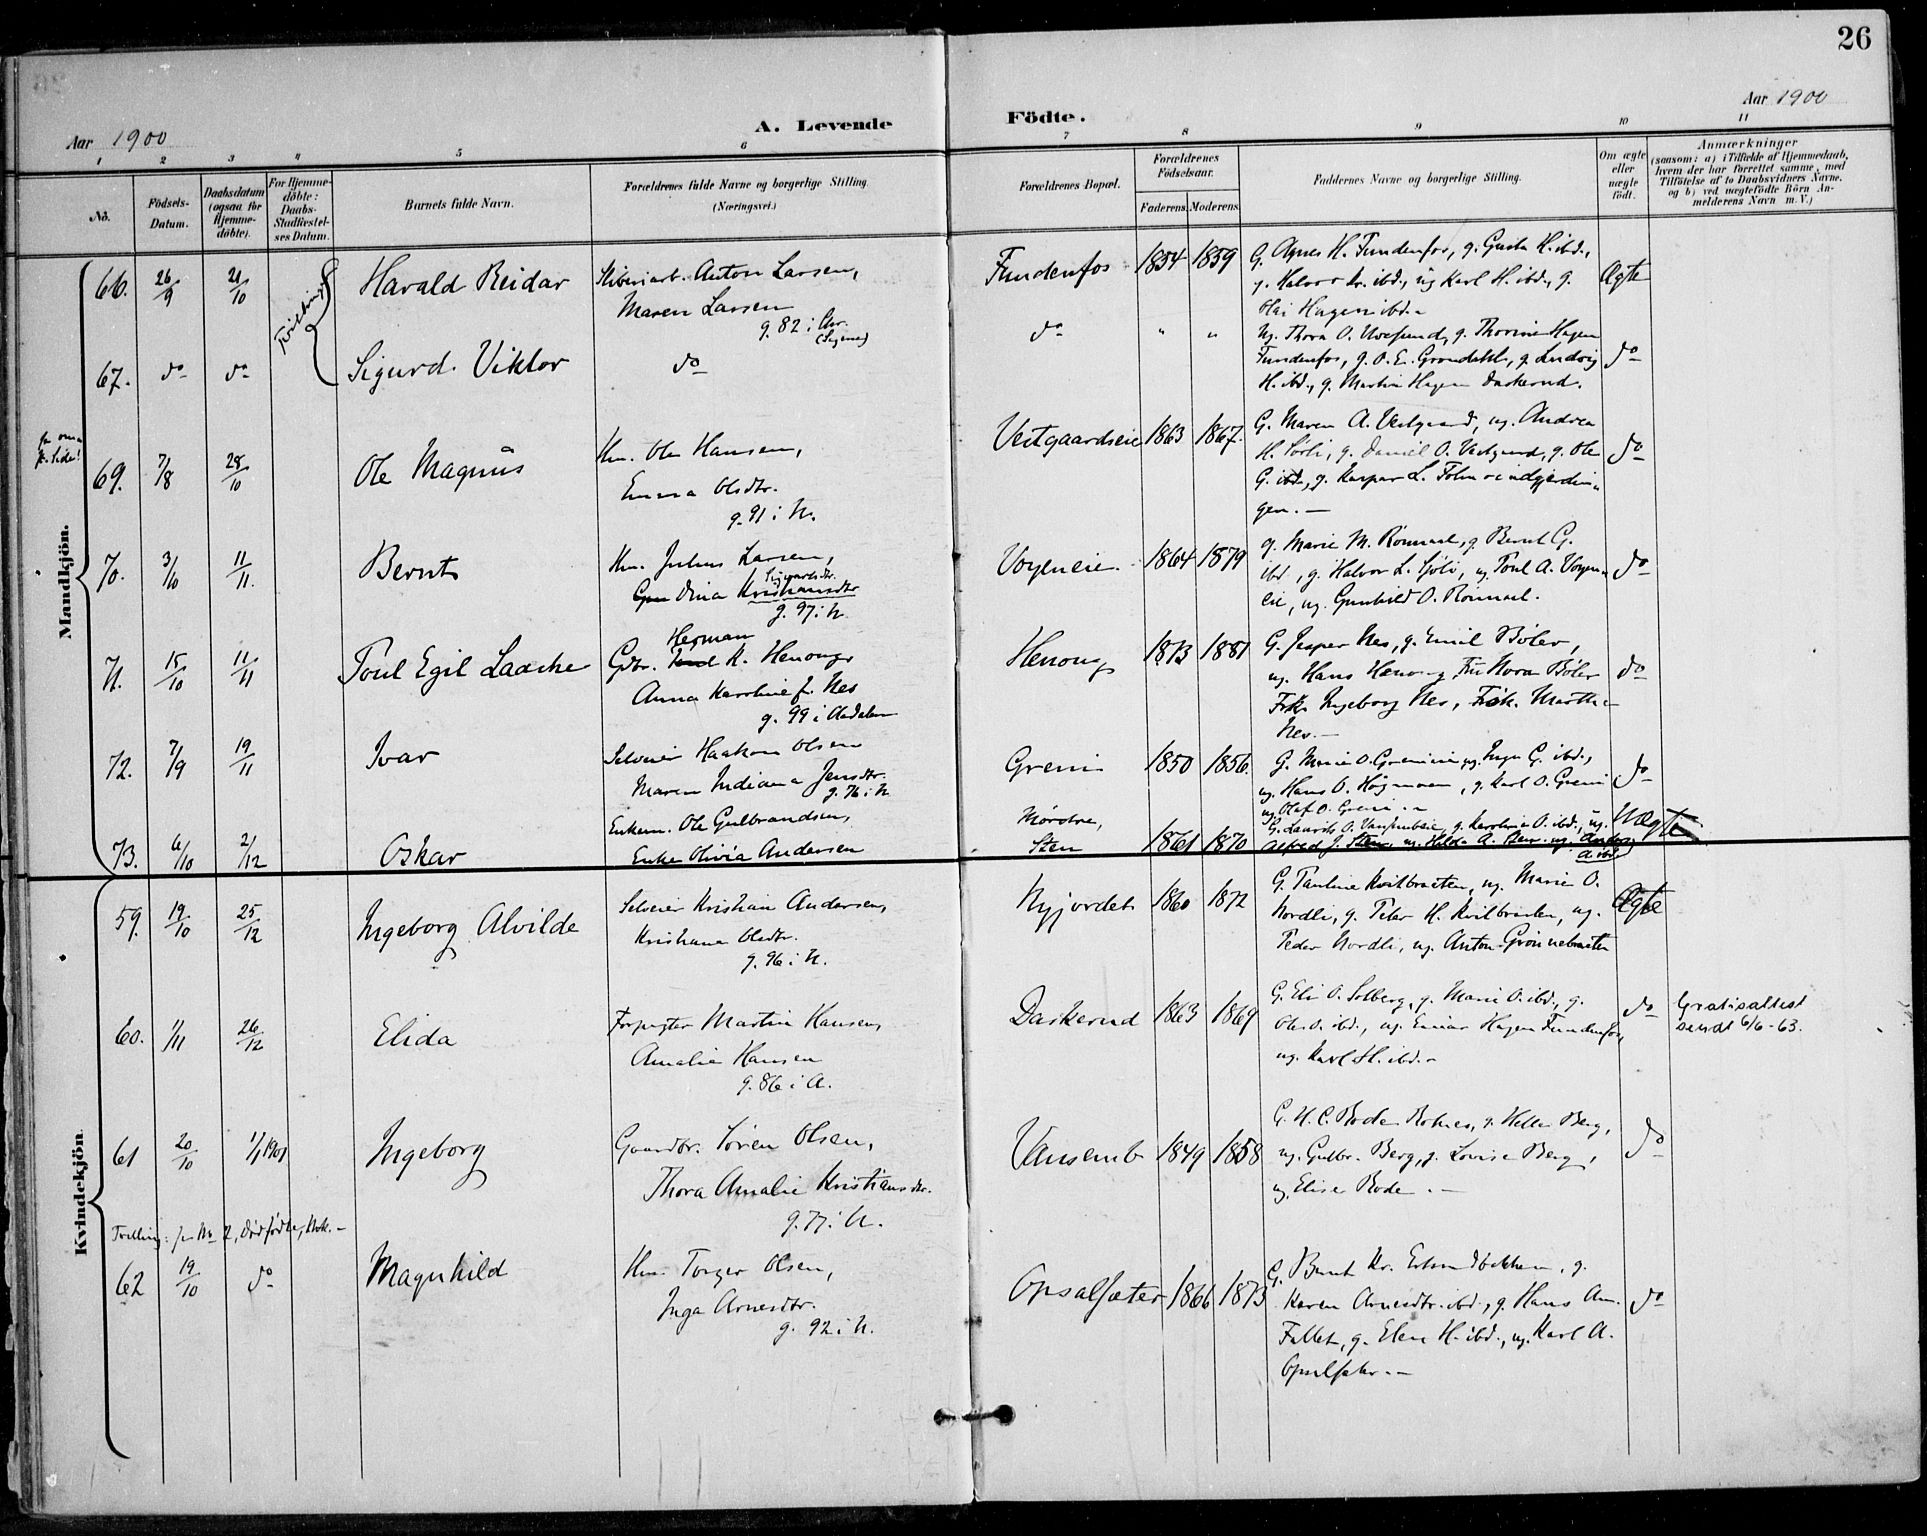 26
Aar 1900
A. Levende
Födte.
Aar 1900
1 2 3 4 5 6 7 8 9 10 11
No.
Födsels-Datum.
Daabsdatum (ogsaa for Hjemmedöbte).
For Hjemmedöbte: Daabs-Stadfæstelses Datum.
Barnets fulde Navn.
Forældrenes fulde Navne og borgerlige Stilling.
(Næringsvei.)
Forældrenes Bopæl.
Forældrenes Födselsaar.
Faderens. Moderens.
Faddernes Navne og borgerlige Stilling.
Om ægte eller uægte födt.
Anmærkninger
(saasom: a) i Tilfælde af Hjemmedaab, hvem der har forrettet samme, med Tilföielse af to Daabsvidners Navne, og b) ved uægtefödte Börn Anmelderens Navn m. V.)
Mandkjön.
66. 26/9 21/10 Tvillinger Harald Reidar
Anton Larsen,
Maren Larsen
g. 82 i Chr.
Fundenfos 1854 1859
G. Agnes H. Fundenfos, g. Gusta H. ibd.,
g. Halvor Kr. ibd., ug Karl H. ibd., g.
Hagen ibd.
Ægte
67. do do Sigurd. Viktor
do
do " "
Ug. Thora O. g. Thorine Hagen
Fundenfos, g. O. E. Grøndahl, g. Ludvig
H. ibd., g. Martin Hagen Daskerud.
do
69. 7/8 28/10 Ole Magnus
Hm. Ole Hansen,
Emma Olsdtr.
g. 91 i N.
Vestgaardseie 1863 1867.
G. Maren A. Vestgaard, ug. Andrea
H. Sørli, g. Daniel O. Vestgaard, g. Ole
G. ibd., g. Kaspar L.
gen. —
do
70. 3/10 11/11. Bernt
Hm. Julius Larsen,
Sigvartsdtr.
Dina Kristiansdtr
g. 97 i N.
Voyeneie 1864 1879
g. Marie M. g. Bernt G.
ibd., g. Halvor L. ug. Poul A.
eie, ug. Gunhild O.
do
71. 15/10 11/11 Poul Egil Laache
Herman
Gdbr. K. Henong
Anna Karoline f. Nes
g. 99 i Aadalen
Henong 1873 1881
G. Jesper Nes, g. Emil Bøler,
ug. Hans Henong Fru Nora Bøler
Frk. Ingeborg Nes, Frøk. Marthe
Nes. —
do
72. 7/9 19/11 Ivar
Selveier Haakon Olsen
Maren Indiana Jensdtr.
g. 76 i N
Greni 1850 1856.
G. Marie O. ug. Inga G. ibd.,
ug. Hans O. g. Karl O. Greni
ug. Olaf O. Greni. —
do
73. 6/10 2/12 Oskar
Enkem. Ole Gulbrandsen,
Enke Olivia Andersen
Nordre,
Sten 1861 1870
G. Laurits O. g. Karoline O. ibd., ug.
Alfred J. Sten, ug. Hilda A. Sten, ug.
A. ibd.
Uægte
Kvindekjön.
59. 19/10 25/12 Ingeborg Alvilde
Selveier Kristian Andersen,
Kristiane Olsdtr.
g. 96 i N.
Nyjordet 1860 1872
G. Pauline Kvilbraaten, ug. Marie O.
Nordli, g. Peter H. ug.
Peder Nordli, ug. Anton Grønnebraaten
Ægte
60. 1/11 26/12 Elida
Forpagter Martin Hansen,
Amalie Hansen
g. 86 i A.
Daskerud 1863 1869
G. Eli O. Solberg, g. Marie O. ibd., g.
Ole O. ibd., ug. Einar Hagen Fundenfos,
ug. Karl H. ibd. —
do
Gratisattest
sendt 6/6-63.
61 20/10 1/1 1901 Ingeborg
Gaardbr. Søren Olsen,
Thora Amalie Kristiansdtr.
g. 77 i N.
Vansemb 1849 1858
G. N. C. Bode g. Helle Berg,
ug. Gulbr. Berg, g. Lovise Berg,
ug. Elise Bode. —
do
Tvilling: jfr No 2, Dødfødte, Mdk. —
62 19/10 do Magnhild
Hm. Torger Olsen,
Inga Arnesdtr.
g. 92 i N.
Opsalsæter 1866 1873
G. Bernt Kr. g.
Karen Arnesdtr. ibd., g. Hans Am.
Fallet, g. Elen H. ibd., ug. Karl A.
Opsalsæter. —
do